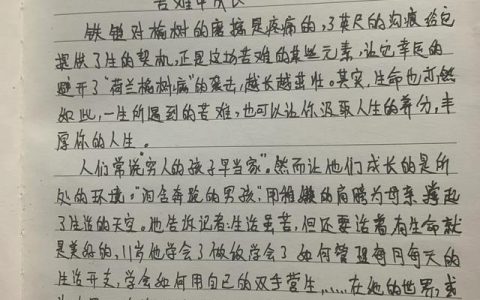 苦难中成长
铁链对榆树的磨擦是疼痛的,了英尺的沟痕给它
提供了生的契机,正是这场苦难的某些元素,让它幸运的
避开了“荷兰榆树病”的袭击,越长越茁壮。其实,生命也亦然
如此,一生所遇到的苦难,也可以让你汲取人生的养分,丰
厚你的人生。
人们常说“穷人的孩子早当家”。然而让他们成长的是所
处的环境。“泪含奔跑的男孩”,用稚嫩的肩膀为母亲撑起
了生活的天空。他告诉记者:生活虽苦,但还要活着,有生命就
是美好的,11岁他学会了做饭学会了如何管理每月每天的
生活开支,学会如何用自己的双手营生......在他的世界,或